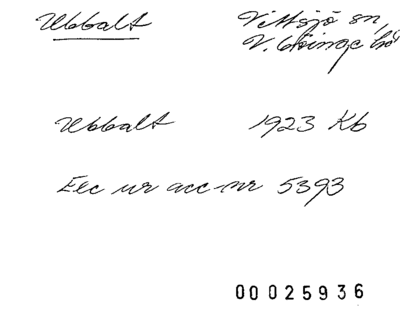 Ubbalt
Vittsjö sn,
V. Göinge hd
Ubbalt 1923 Kb
Exc ur acc-nr 5393
00025936